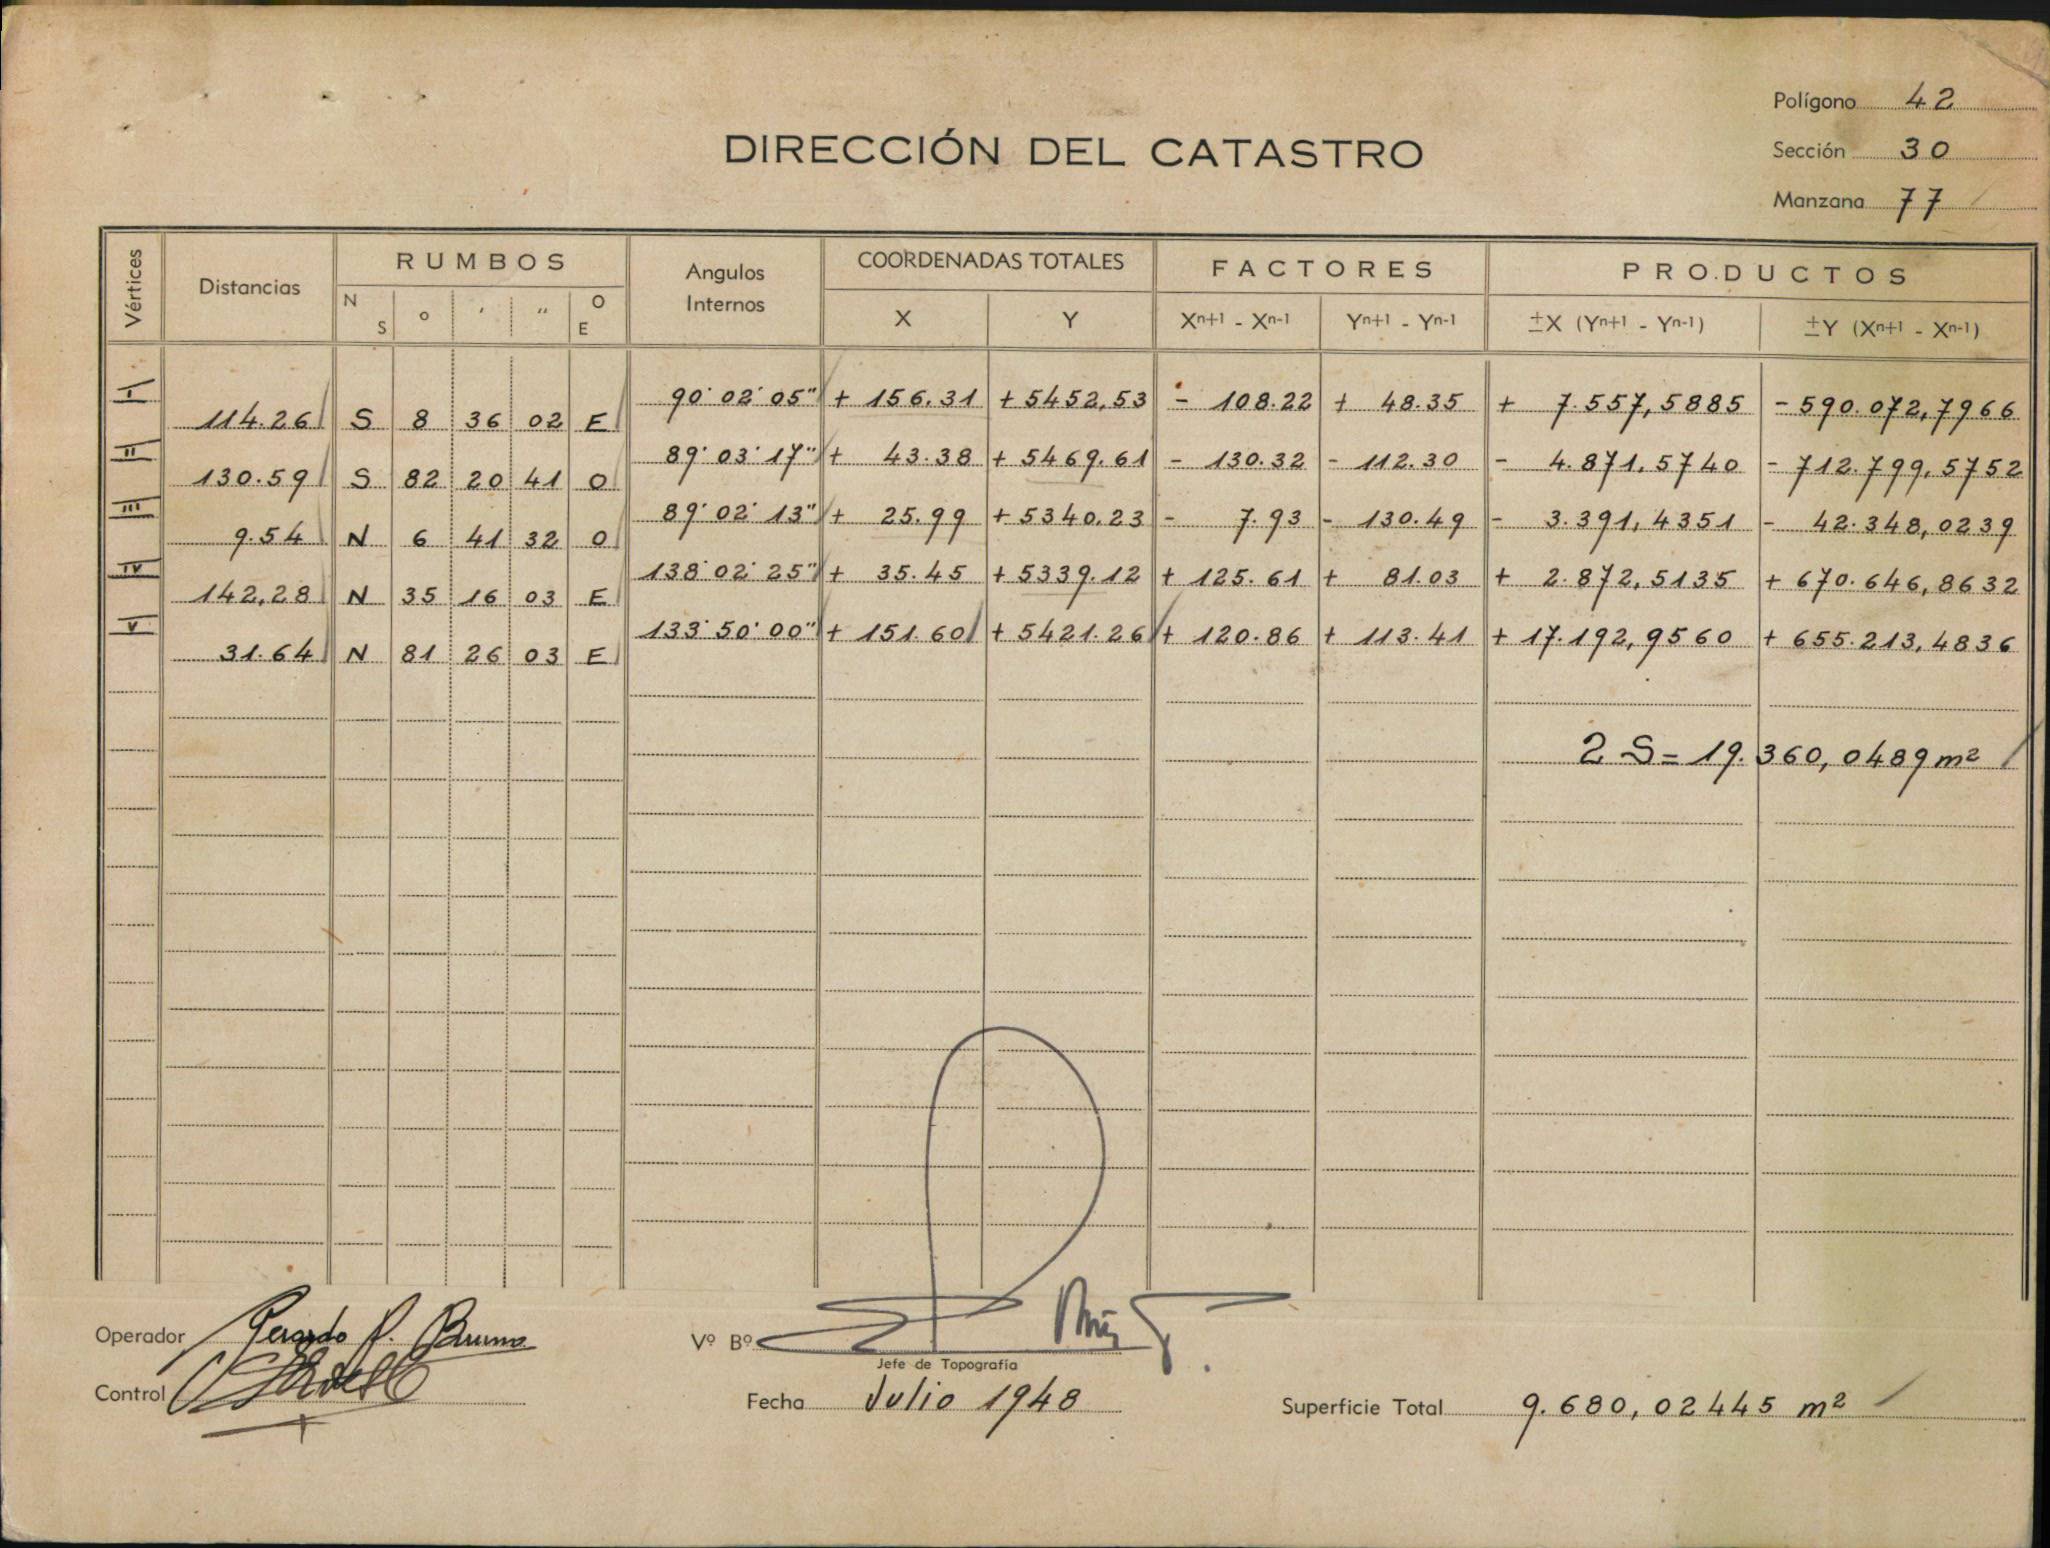 Polígono 42
DIRECCIÓN DEL CATASTRO
Sección 30
Manzana 77
Vértices Distancias RUMBOS Angulos Internos COORDENADAS TOTALES FACTORES PRODUCTOS
N S ° ′ ″ O E X Y Xⁿ⁺¹ - Xⁿ⁻¹ Yⁿ⁺¹ - Yⁿ⁻¹ ±X (Yⁿ⁺¹ - Yⁿ⁻¹) ±Y (Xⁿ⁺¹ - Xⁿ⁻¹)
I 90° 02' 05" + 156.31 + 5452,53 - 108.22 + 48.35 + 7.557,5885 - 590.072,7966
114.26 S 8 36 02 E
II 89° 03' 17" + 43.38 + 5469.61 - 130.32 - 112.30 - 4.871,5740 - 712.799,5752
130.59 S 82 20 41 O
III 89° 02' 13" + 25.99 + 5340.23 - 7.93 - 130.49 - 3.391,4351 - 42.348,0239
9.54 N 6 41 32 O
IV 138° 02' 25" + 35.45 + 5339.12 + 125.61 + 81.03 + 2.872,5135 + 670.646,8632
142,28 N 35 16 03 E
V 133° 50' 00" + 151.60 + 5421.26 + 120.86 + 113.41 + 17.192,9560 + 655.213,4836
31.64 N 81 26 03 E
2 S = 19.360,0489 m²
Operador Gerardo P. Bruno
Vº Bº
Jefe de Topografía
Control
Fecha Julio 1948
Superficie Total 9.680,02445 m²